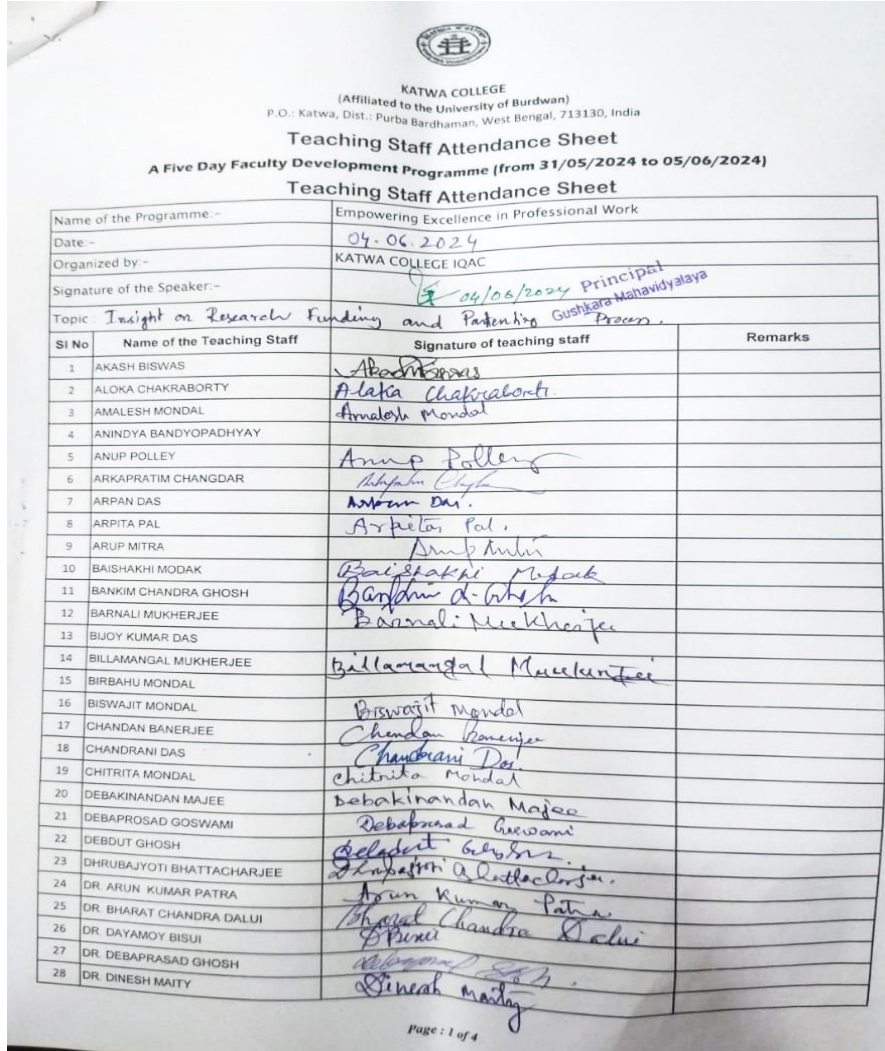 KATWA COLLEGE
(Affiliated to the University of Burdwan)
P.O.: Katwa, Dist.: Purba Bardhaman, West Bengal, 713130, India
Teaching Staff Attendance Sheet
A Five Day Faculty Development Programme (from 31/05/2024 to 05/06/2024)
Teaching Staff Attendance Sheet
Name of the Programme:- Empowering Excellence in Professional Work
Date:- 04.06.2024
Organized by:- KATWA COLLEGE IQAC
Signature of the Speaker:- 04/06/2024 Principal
Gushkara Mahavidyalaya
Topic: Insight on Research Funding and Patenting Process.
Sl No Name of the Teaching Staff Signature of teaching staff Remarks
1 AKASH BISWAS Akash Biswas
2 ALOKA CHAKRABORTY Alaka Chakraborti.
3 AMALESH MONDAL Amalesh Mondal
4 ANINDYA BANDYOPADHYAY
5 ANUP POLLEY Anup Polley
6 ARKAPRATIM CHANGDAR
7 ARPAN DAS Arpan Das.
8 ARPITA PAL Arpita Pal.
9 ARUP MITRA Arup Mitra
10 BAISHAKHI MODAK Baishakhi Modak
11 BANKIM CHANDRA GHOSH
12 BARNALI MUKHERJEE Barnali Mukherjee
13 BIJOY KUMAR DAS
14 BILLAMANGAL MUKHERJEE Billamangal Mukherjee
15 BIRBAHU MONDAL
16 BISWAJIT MONDAL Biswajit Mondal
17 CHANDAN BANERJEE Chandan Banerjee
18 CHANDRANI DAS Chandrani Das.
19 CHITRITA MONDAL Chitrita Mondal
20 DEBAKINANDAN MAJEE Debakinandan Majee
21 DEBAPROSAD GOSWAMI Debaprosad Goswami
22 DEBDUT GHOSH
23 DHRUBAJYOTI BHATTACHARJEE Dhrubajyoti Bhattacharjee.
24 DR. ARUN KUMAR PATRA Arun Kumar Patra
25 DR. BHARAT CHANDRA DALUI Bharat Chandra Dalui
26 DR. DAYAMOY BISUI DBisui
27 DR. DEBAPRASAD GHOSH
28 DR. DINESH MAITY Dinesh Maity
Page : 1 of 4